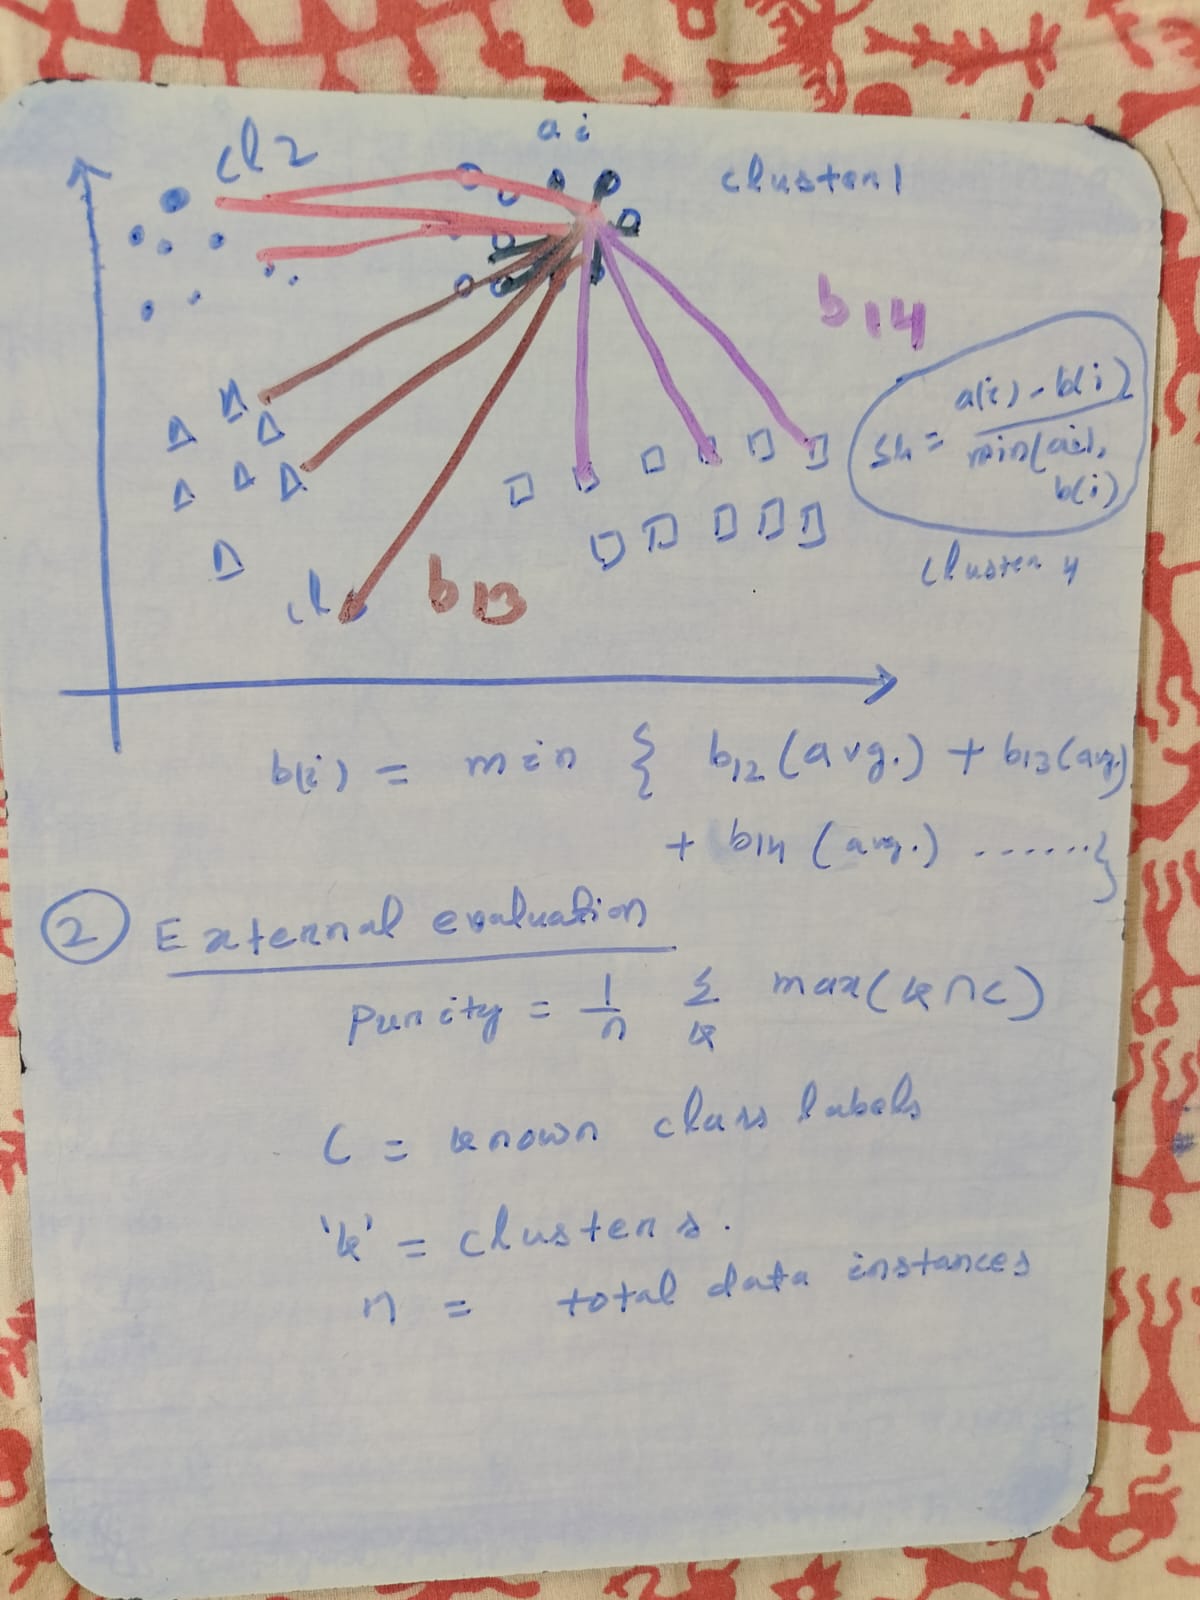 cl2
ai
cluster 1
b14
Sh = a(i) - b(i)
min(a(i),
b(i)
cluster 4
cl
b13
b(i) = min { b12 (avg.) + b13 (avg.)
+ b14 (avg.) ......}
2 External evaluation
Purity = 1/n Σ k max(k∩c)
C = known class labels
'k' = clusters.
n = total data instances